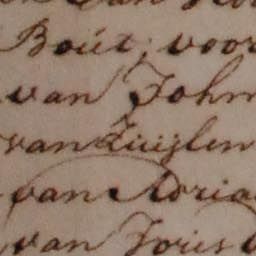 Boút; voor
van John
van Zuijlen
van Adria
van Joris